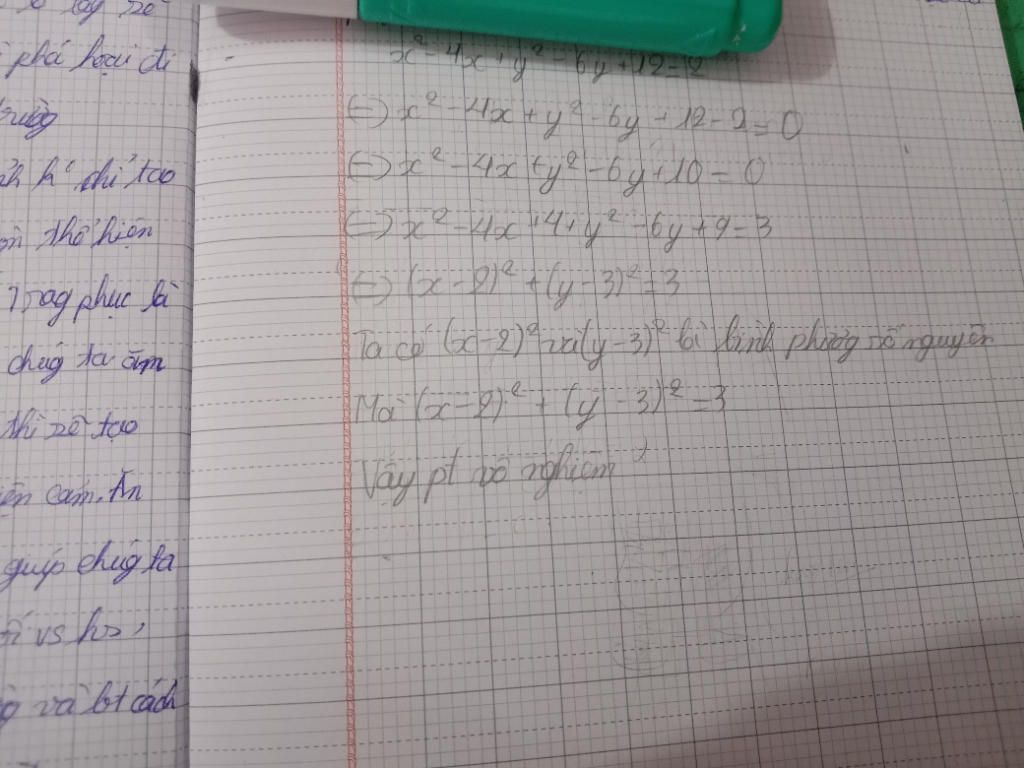 phá hoại đi
trường
chỉ tao
thể hiện
Trag phục là
chúg ta cảm
thì sẽ tạo
cảm. Ăn
giúp chúg ta
vs hs,
và bt cách
x² - 4x + y² - 6y + 12 = 2
(=) x² - 4x + y² - 6y + 12 - 2 = 0
(=) x² - 4x + y² - 6y + 10 = 0
(=) x² - 4x + 4 + y² - 6y + 9 = 3
(=) (x - 2)² + (y - 3)² = 3
Ta có (x - 2)² và (y - 3)² là bình phương số nguyên
Mà (x - 2)² + (y - 3)² = 3
Vậy pt vô nghiệm